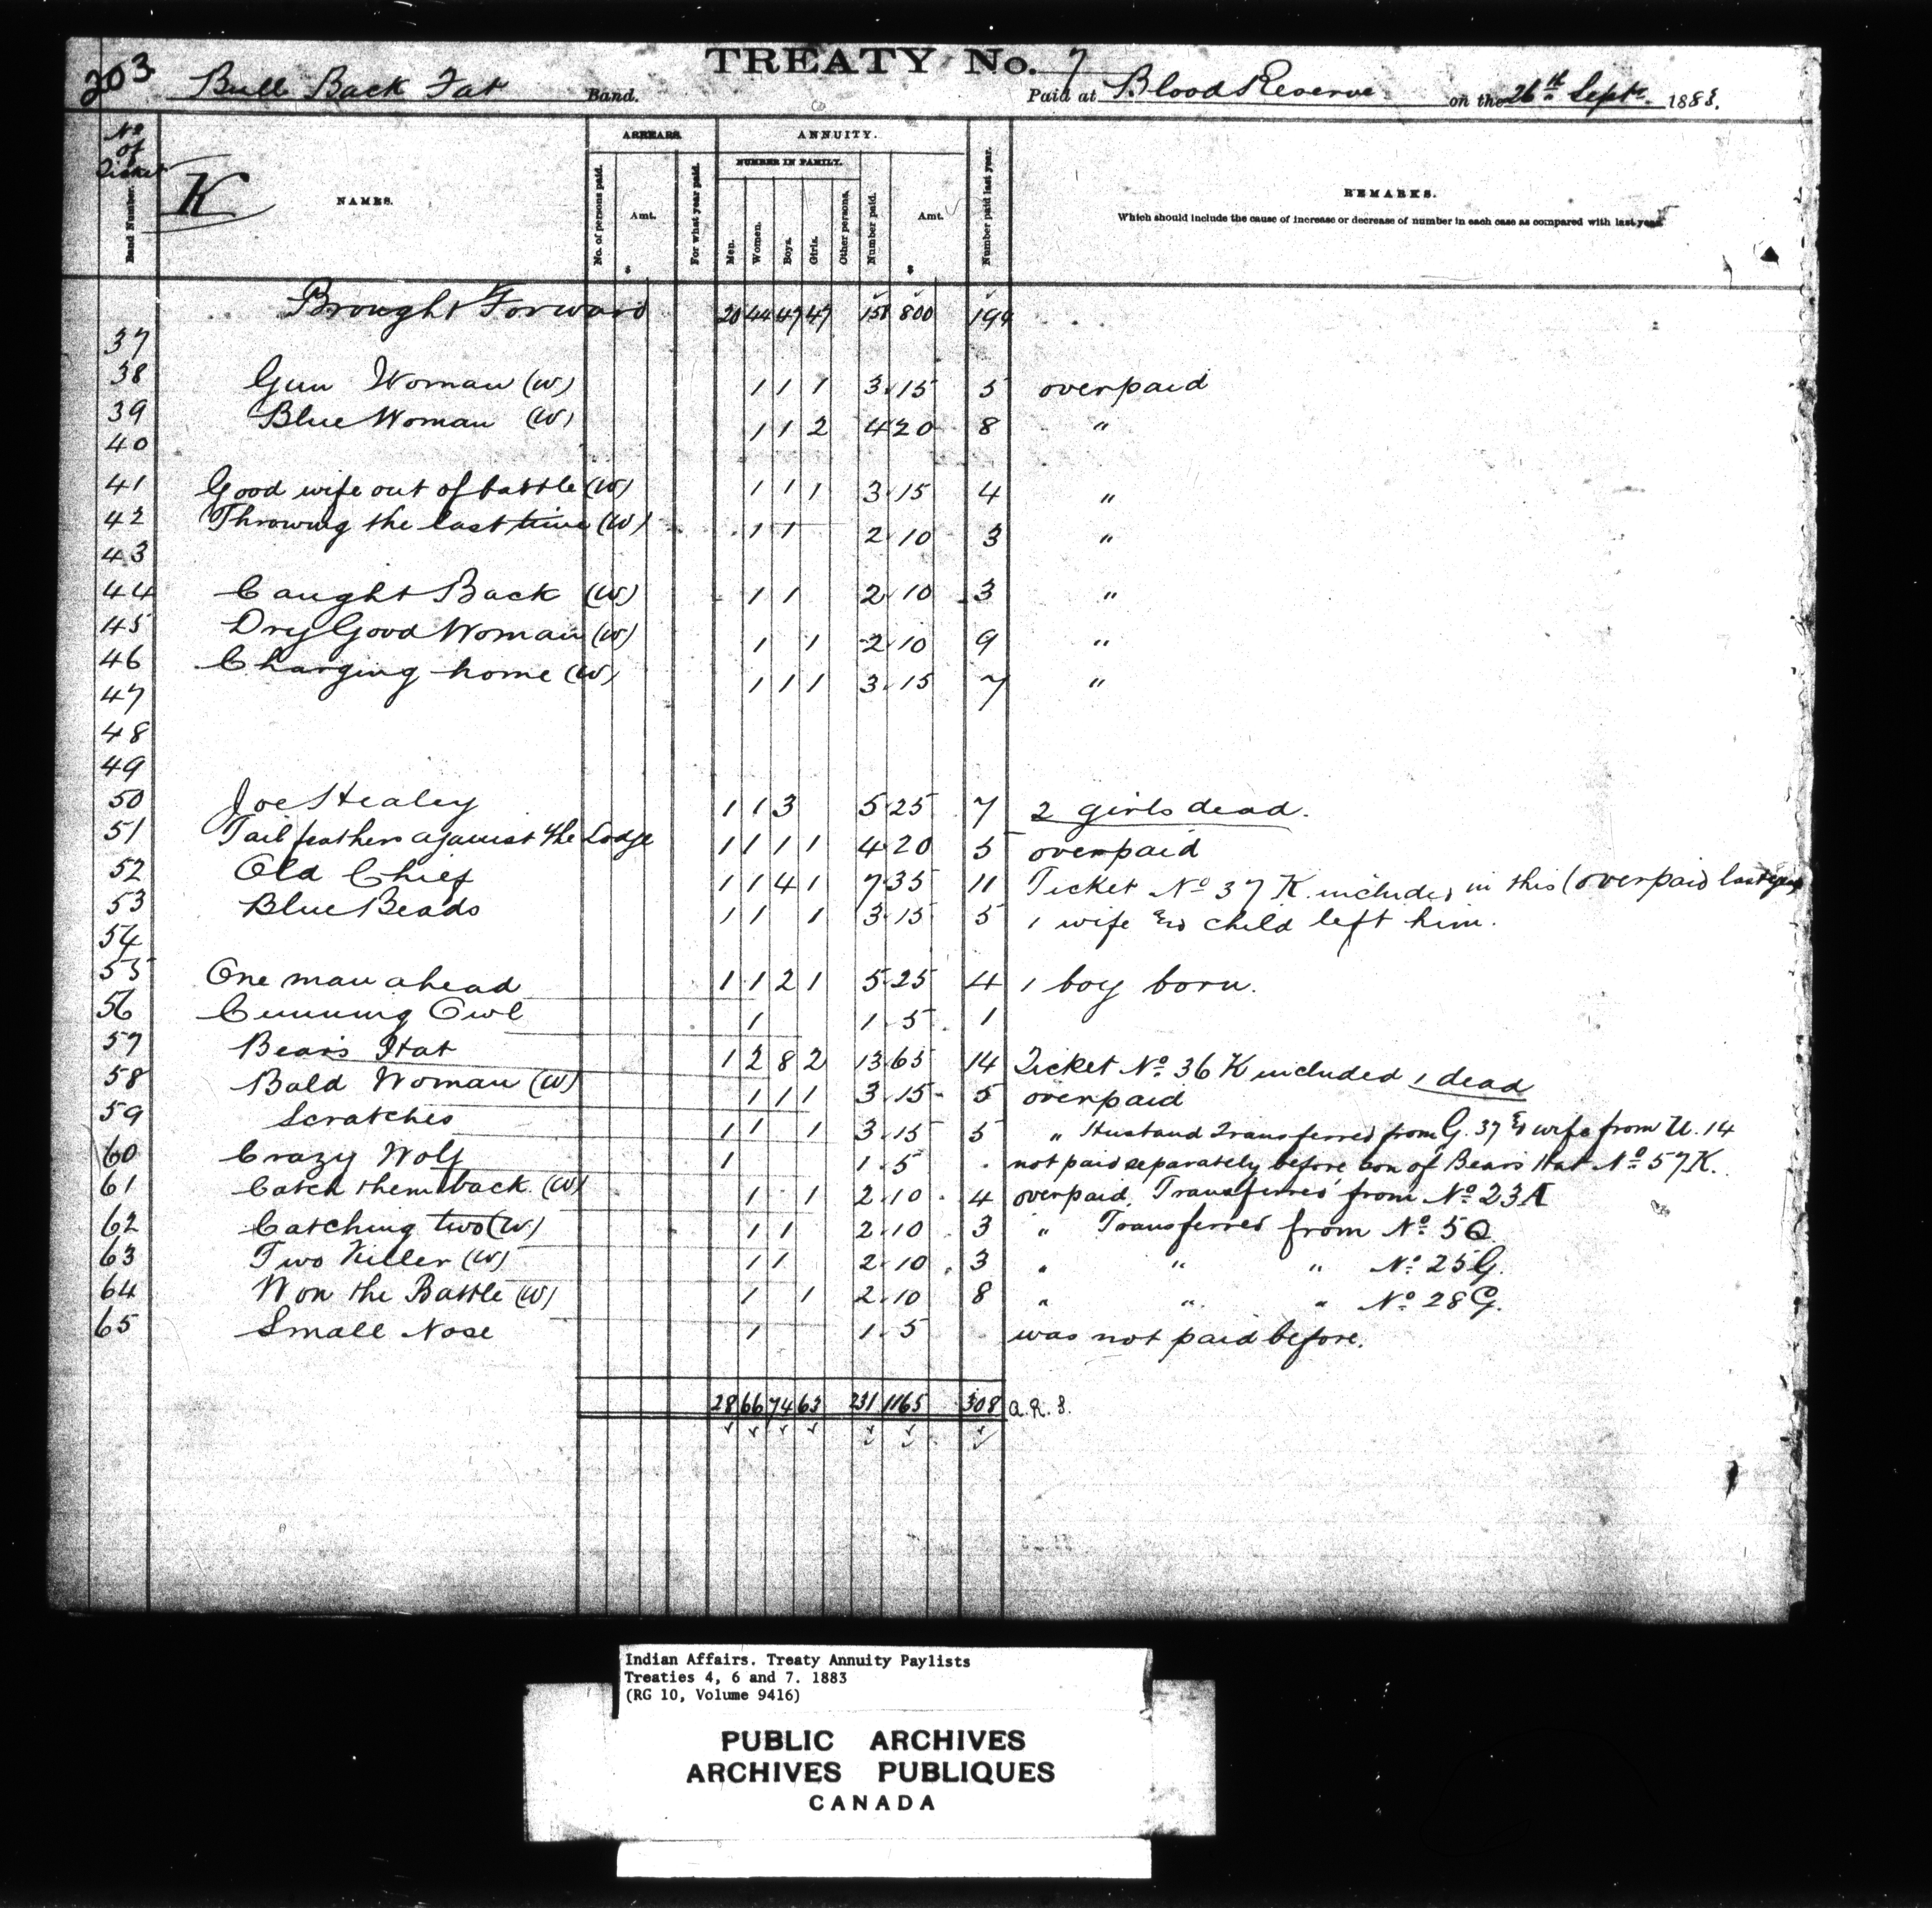 203
TREATY No. 7
Bull Back Fat Band. Paid at Blood Reserve on the 26th Sept. 1883.
No of Ticket
K
Band Number. NAMES. ARREARS. ANNUITY. REMARKS.
No. of persons paid. Amt. $ For what year paid. NUMBER IN FAMILY. Men. Women. Boys. Girls. Other persons. Number paid. Amt. $ Number paid last year.
Which should include the cause of increase or decrease of number in each case as compared with last year.
Brought Forward 20 44 47 47 158 800 194
37
38 Gun Woman (W) 1 1 1 3 15 5 overpaid
39 Blue Woman (W) 1 1 2 4 20 8 "
40
41 Good wife out of battle (W) 1 1 1 3 15 4 "
42 Throwing the last time (W) 1 1 2 10 3 "
43
44 Caught Back (W) 1 1 2 10 3 "
45 Dry Good Woman (W) 1 1 2 10 9 "
46 Charging home (W) 1 1 1 3 15 7 "
47
48
49
50 Joe Healey 1 1 3 5 25 7 2 girls dead.
51 Tail feathers against the Lodge 1 1 1 1 4 20 5 overpaid
52 Old Chief 1 1 4 1 7 35 11 Ticket No 37 K. included in this (overpaid last year)
53 Blue Beads 1 1 1 3 15 5 1 wife & child left him.
54
55 One man ahead 1 1 2 1 5 25 4 1 boy born.
56 Cunning Owl 1 1 5 1
57 Bears Hat 1 2 8 2 13 65 14 Ticket No. 36 K included 1 dead
58 Bald Woman (W) 1 1 1 3 15 5 overpaid
59 Scratches 1 1 1 3 15 5 " Husband Transferred from G. 37 & wife from U. 14
60 Crazy Wolf 1 1 5 not paid separately before son of Bears Hat No. 57 K.
61 Catch them back (W) 1 1 2 10 4 overpaid, Transferred from No. 23 A
62 Catching two (W) 1 1 2 10 3 " Transferred from No. 5 Q
63 Two Killer (W) 1 1 2 10 3 " " " No. 25 G.
64 Won the Battle (W) 1 1 2 10 8 " " " No. 28 G.
65 Small Nose 1 1 5 was not paid before.
28 66 74 63 231 1165 308 a.R.S.
Indian Affairs. Treaty Annuity Paylists
Treaties 4, 6 and 7. 1883
(RG 10, Volume 9416)
PUBLIC ARCHIVES
ARCHIVES PUBLIQUES
CANADA